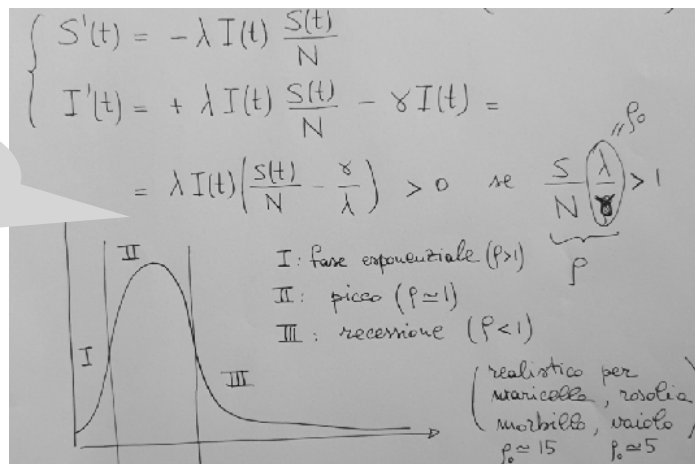 S'(t) = - λ I(t) S(t)/N
I'(t) = + λ I(t) S(t)/N - γ I(t) =
= λ I(t) (S(t)/N - γ/λ) > 0 se S/N λ/γ > 1
"ρ₀
ρ
I
II
III
I: fase esponenziale (ρ>1)
II: picco (ρ≃1)
III: recessione (ρ<1)
(realistico per
varicella, rosolia
morbillo, vaiolo)
ρ₀≃15 ρ₀≃5